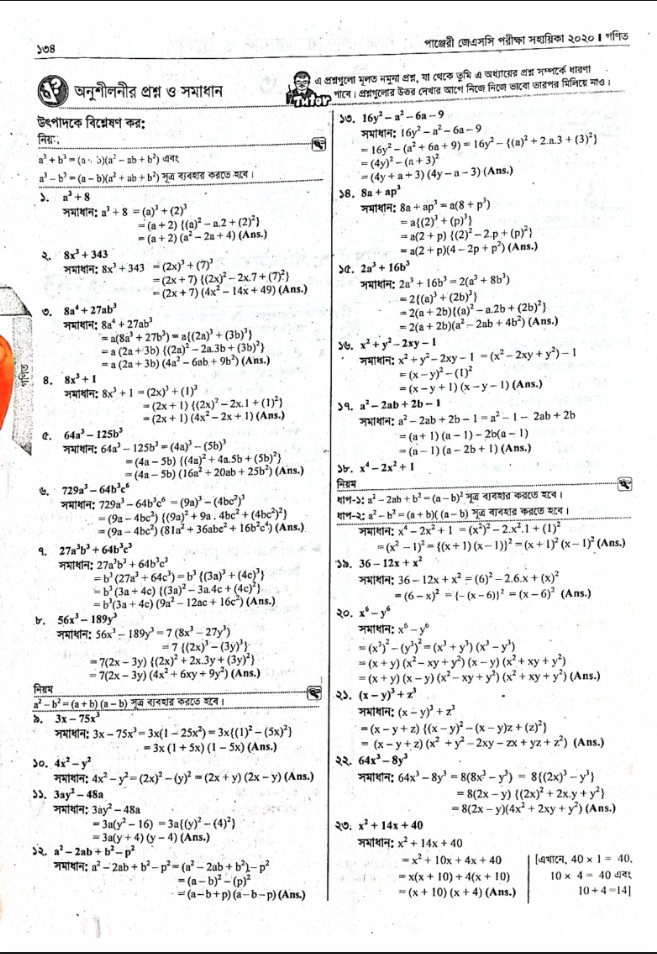 ১৩৪
পাঞ্জেরী জেএসসি পরীক্ষা সহায়িকা ২০২০ ▌ গণিত
অনুশীলনীর প্রশ্ন ও সমাধান
এ প্রশ্নগুলো মূলত নমুনা প্রশ্ন, যা থেকে তুমি এ অধ্যায়ের প্রশ্ন সম্পর্কে ধারণা
পাবে। প্রশ্নগুলোর উত্তর দেখার আগে নিজে নিজে ভাবো তারপর মিলিয়ে নাও।
TUTOR
উৎপাদকে বিশ্লেষণ কর:
নিয়ম:
a³ + b³ = (a + b)(a² − ab + b²) এবং
a³ − b³ = (a − b)(a² + ab + b²) সূত্র ব্যবহার করতে হবে।
১. a³ + 8
সমাধান: a³ + 8 = (a)³ + (2)³
= (a + 2) {(a)² − a.2 + (2)²}
= (a + 2) (a² − 2a + 4) (Ans.)
২. 8x³ + 343
সমাধান: 8x³ + 343 = (2x)³ + (7)³
= (2x + 7) {(2x)² − 2x.7 + (7)²}
= (2x + 7) (4x² − 14x + 49) (Ans.)
৩. 8a⁴ + 27ab³
সমাধান: 8a⁴ + 27ab³
= a(8a³ + 27b³) = a{(2a)³ + (3b)³}
= a (2a + 3b) {(2a)² − 2a.3b + (3b)²}
= a (2a + 3b) (4a² − 6ab + 9b²) (Ans.)
গণিত
৪. 8x³ + 1
সমাধান: 8x³ + 1 = (2x)³ + (1)³
= (2x + 1) {(2x)² − 2x.1 + (1)²}
= (2x + 1) (4x² − 2x + 1) (Ans.)
৫. 64a³ − 125b³
সমাধান: 64a³ − 125b³ = (4a)³ − (5b)³
= (4a − 5b) {(4a)² + 4a.5b + (5b)²}
= (4a − 5b) (16a² + 20ab + 25b²) (Ans.)
৬. 729a³ − 64b³c⁶
সমাধান: 729a³ − 64b³c⁶ = (9a)³ − (4bc²)³
= (9a − 4bc²) {(9a)² + 9a . 4bc² + (4bc²)²}
= (9a − 4bc²) (81a² + 36abc² + 16b²c⁴) (Ans.)
৭. 27a³b³ + 64b³c³
সমাধান: 27a³b³ + 64b³c³
= b³ (27a³ + 64c³) = b³ {(3a)³ + (4c)³}
= b³ (3a + 4c) {(3a)² − 3a.4c + (4c)²}
= b³(3a + 4c) (9a² − 12ac + 16c²) (Ans.)
৮. 56x³ − 189y³
সমাধান: 56x³ − 189y³ = 7 (8x³ − 27y³)
= 7 {(2x)³ − (3y)³}
= 7(2x − 3y) {(2x)² + 2x.3y + (3y)²}
= 7(2x − 3y) (4x² + 6xy + 9y²) (Ans.)
নিয়ম
a² − b² = (a + b) (a − b) সূত্র ব্যবহার করতে হবে।
৯. 3x − 75x³
সমাধান: 3x − 75x³ = 3x(1 − 25x²) = 3x{(1)² − (5x)²}
= 3x (1 + 5x) (1 − 5x) (Ans.)
১০. 4x² − y²
সমাধান: 4x² − y² = (2x)² − (y)² = (2x + y) (2x − y) (Ans.)
১১. 3ay² − 48a
সমাধান: 3ay² − 48a
= 3a(y² − 16) = 3a{(y)² − (4)²}
= 3a(y + 4) (y − 4) (Ans.)
১২. a² − 2ab + b² − p²
সমাধান: a² − 2ab + b² − p² = (a² − 2ab + b²) − p²
= (a − b)² − (p)²
= (a − b + p) (a − b − p) (Ans.)
১৩. 16y² − a² − 6a − 9
সমাধান: 16y² − a² − 6a − 9
= 16y² − (a² + 6a + 9) = 16y² − {(a)² + 2.a.3 + (3)²}
= (4y)² − (a + 3)²
= (4y + a + 3) (4y − a − 3) (Ans.)
১৪. 8a + ap³
সমাধান: 8a + ap³ = a(8 + p³)
= a{(2)³ + (p)³}
= a(2 + p) {(2)² − 2.p + (p)²}
= a(2 + p)(4 − 2p + p²) (Ans.)
১৫. 2a³ + 16b³
সমাধান: 2a³ + 16b³ = 2(a³ + 8b³)
= 2{(a)³ + (2b)³}
= 2(a + 2b){(a)² − a.2b + (2b)²}
= 2(a + 2b)(a² − 2ab + 4b²) (Ans.)
১৬. x² + y² − 2xy − 1
সমাধান: x² + y² − 2xy − 1 = (x² − 2xy + y²) − 1
= (x − y)² − (1)²
= (x − y + 1) (x − y − 1) (Ans.)
১৭. a² − 2ab + 2b − 1
সমাধান: a² − 2ab + 2b − 1 = a² − 1 − 2ab + 2b
= (a + 1) (a − 1) − 2b(a − 1)
= (a − 1) (a − 2b + 1) (Ans.)
১৮. x⁴ − 2x² + 1
নিয়ম
ধাপ-১: a² − 2ab + b² = (a − b)² সূত্র ব্যবহার করতে হবে।
ধাপ-২: a² − b² = (a + b)( (a − b) সূত্র ব্যবহার করতে হবে।
সমাধান: x⁴ − 2x² + 1 = (x²)² − 2.x².1 + (1)²
= (x² − 1)² = {(x + 1) (x − 1)}² = (x + 1)² (x − 1)² (Ans.)
১৯. 36 − 12x + x²
সমাধান: 36 − 12x + x² = (6)² − 2.6.x + (x)²
= (6 − x)² = {− (x − 6)}² = (x − 6)² (Ans.)
২০. x⁶ − y⁶
সমাধান: x⁶ − y⁶
= (x³)² − (y³)² = (x³ + y³) (x³ − y³)
= (x + y) (x² − xy + y²) (x − y) (x² + xy + y²)
= (x + y) (x − y) (x² − xy + y²) (x² + xy + y²) (Ans.)
২১. (x − y)³ + z³
সমাধান: (x − y)³ + z³
= (x − y + z) {(x − y)² − (x − y)z + (z)²}
= (x − y + z) (x² + y² − 2xy − zx + yz + z²) (Ans.)
২২. 64x³ − 8y³
সমাধান: 64x³ − 8y³ = 8(8x³ − y³) = 8{(2x)³ − y³}
= 8(2x − y) {(2x)² + 2x.y + y²}
= 8(2x − y)(4x² + 2xy + y²) (Ans.)
২৩. x² + 14x + 40
সমাধান: x² + 14x + 40
= x² + 10x + 4x + 40 [এখানে, 40 × 1 = 40,
= x(x + 10) + 4(x + 10) 10 × 4 = 40 এবং
= (x + 10) (x + 4) (Ans.) 10 + 4 =14]